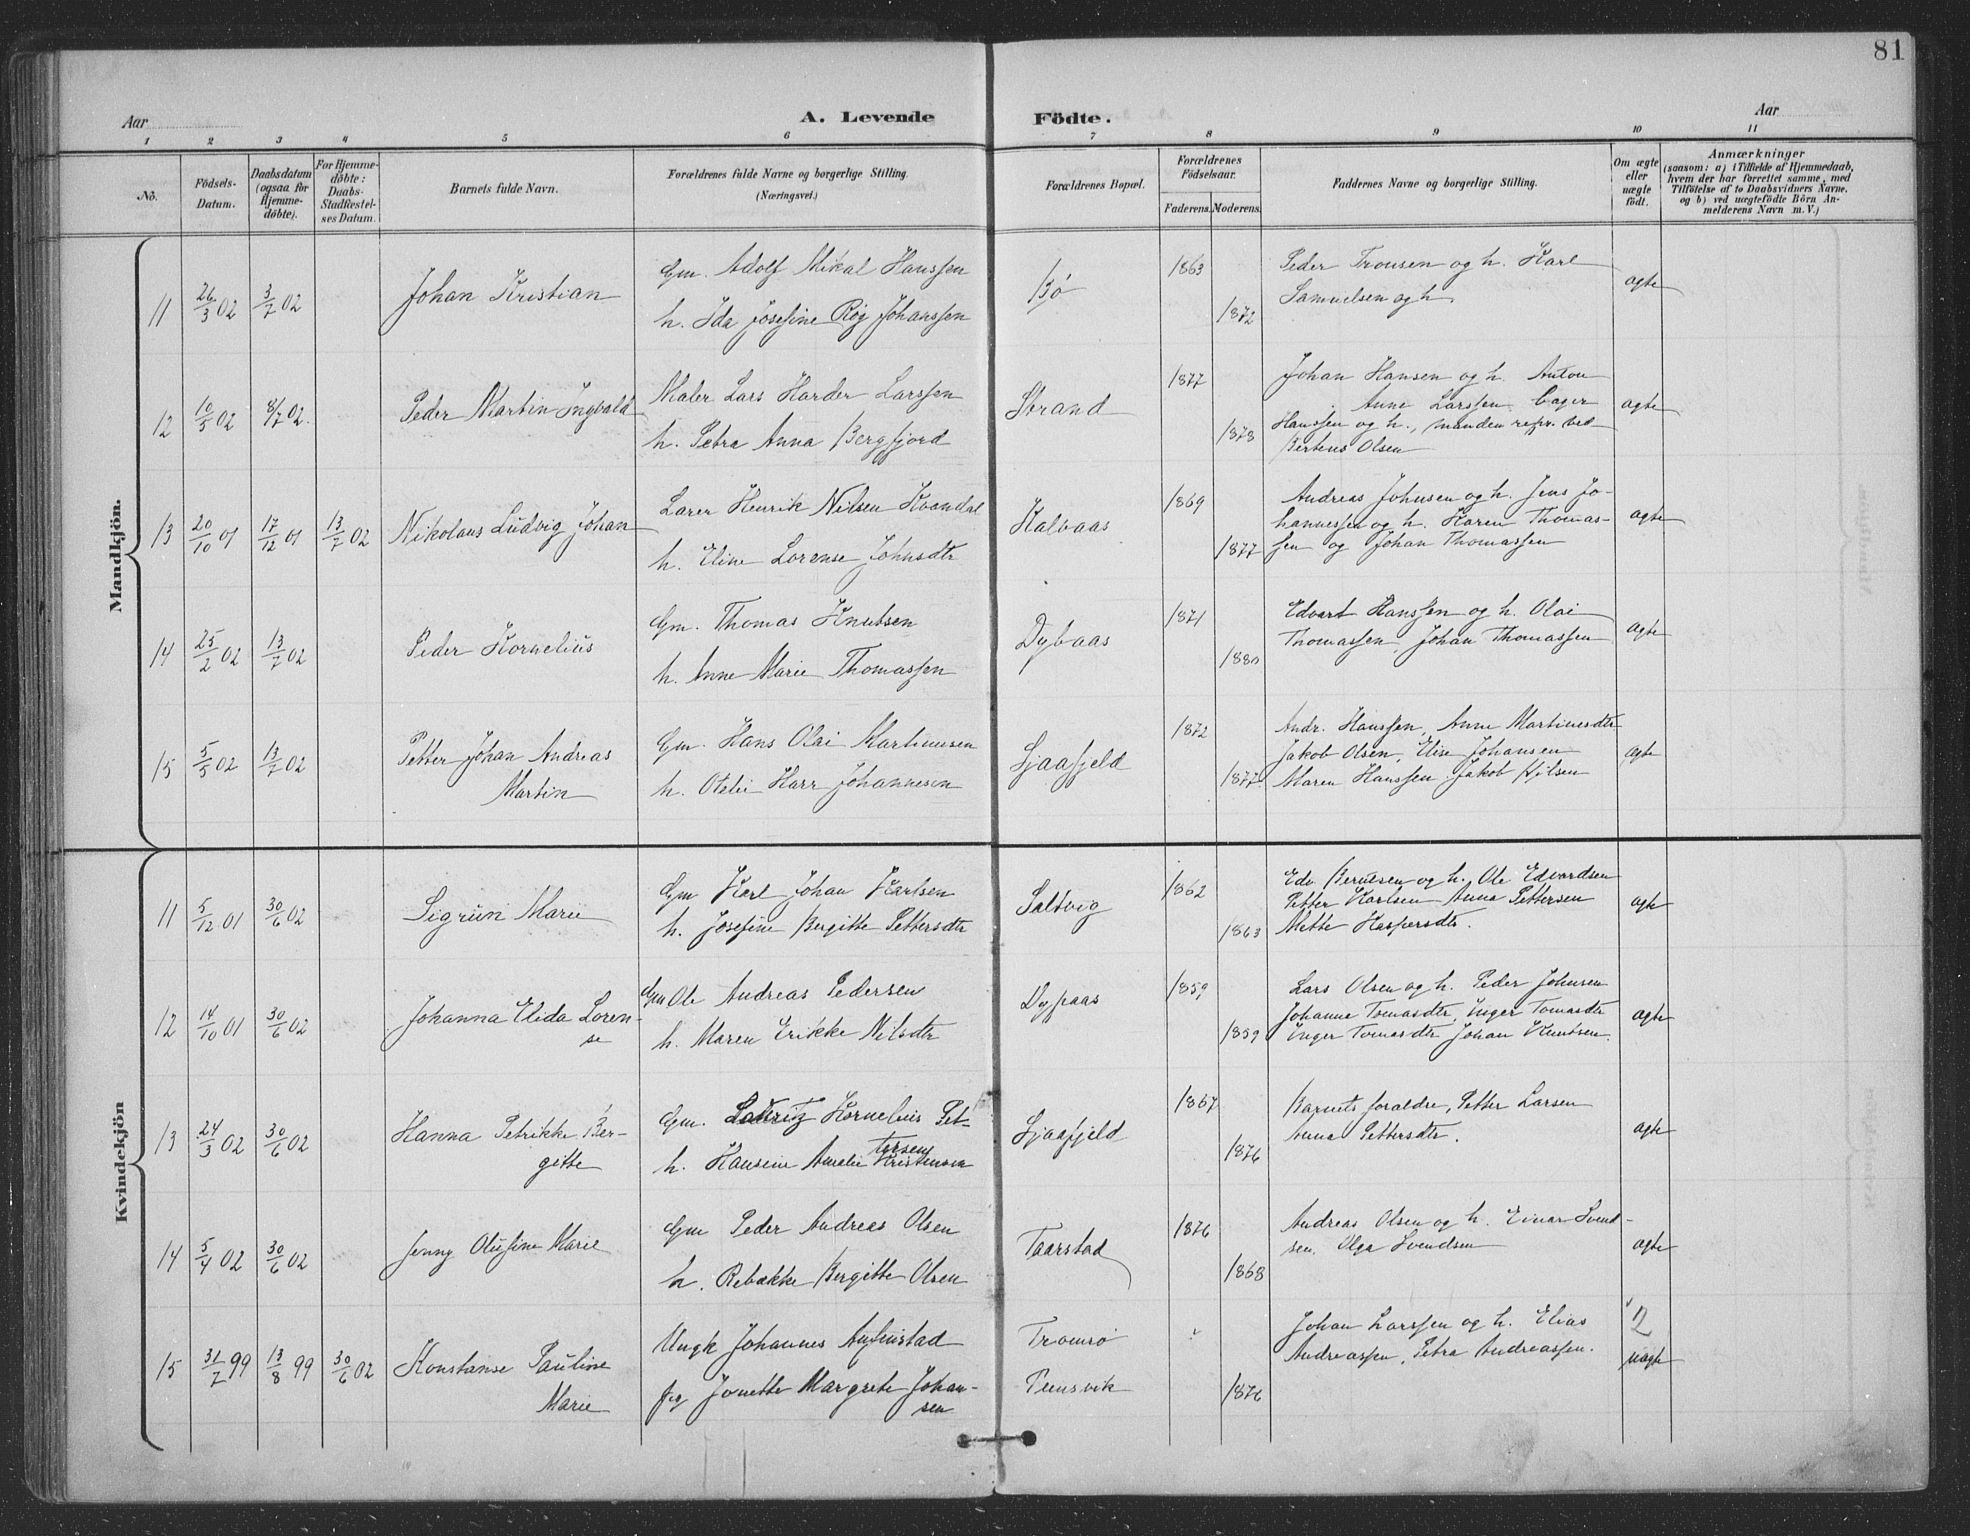 81
Aar
A. Levende
Födte.
Aar
1 2 3 4 5 6 7 8 9 10 11
No.
Födsels-Datum.
Daabsdatum (ogsaa for Hjemme-döbte).
For Hjemme-döbte: Daabs-Stadfæstel-ses Datum.
Barnets fulde Navn.
Forældrenes fulde Navne og borgerlige Stilling.
(Næringsvei.)
Forældrenes Bopæl.
Forældrenes Födselsaar.
Faderens. Moderens.
Faddernes Navne og borgerlige Stilling.
Om ægte eller uægte födt.
Anmærkninger
(saasom: a) i Tilfælde af Hjemmedaab,
hvem der har forrettet samme, med
Tilföielse af to Daabsvidners Navne.
og b) ved uægtefödte Börn An-
melderens Navn m. V.)
Mandkjön.
11 26/3 02 3/7 02 Johan Kristian
Gm. Adolf Mikal Hanssen
h. Ida Josefine Røg Johanssen
Bø 1863 1872
Peder Tronsen og h. Karl
Samuelsen og h
ægte
12 10/5 02 8/7 02. Peder Martin Ingvald
Maler Lars Harder Larssen
h. Petra Anna Bergfjord
Strand 1877 1878
Johan Hansen og h. Anton
Anne Larssen
Hanssen og h., manden repr. ved
Berteus Olsen
ægte
13 20/10 01 17/12 01 13/7 02 Nikolaus Ludvig Johan
Lærer Henrik Nilsen Kvandal
h. Eline Lorense Johnsdtr
Kalvaas 1869 1877
Andreas Johnsen og h. Jens Jo-
hannessen og h. Karen Thomas-
sen og Johan Thomassen
ægte
14 25/2 02 13/7 02 Peder Kornelius
Gm. Thomas Knutsen
h. Anne Marie Thomassen
Dybaas 1871 1880
Edvart Hanssen og h. Olai
Thomassen, Johan Thomassen
ægte
15 5/5 02 13/7 02 Petter Johan Andreas
Martin
Gm. Hans Olai Martinusen
h. Otelie Harr Johannesen
Sjaafjeld 1872 1877
Andr. Hanssen, Anne Martinesdtr
Jakob Olsen, Elise Johansen
Maren Hanssen Jakob Nilsen
ægte
Kvindekjön
11 5/12 01 30/6 02 Sigrun Marie
Gm Karl Johan Karlsen
h. Josefine Bergitte Pettersdtr
Saltvig 1862 1863
Edv Berntsen og h. Ole Edvardsen
Petter Karlsen Anna Pettersen
Mette Kaspersdtr.
ægte
12 14/10 01 30/6 02 Johanna Elida Loren-
se
Gm Ole Andreas Pedersen
h. Maren Erikke Nilsdtr
Dypaas 1859 1859
Lars Olsen og h. Peder Johnsen
Johanna Tomasdtr, Inger Tomasdtr
Inger Tomasdtr Johan Knutsen.
ægte
13 24/3 02 30/6 02 Hanna Petrikke Ber-
gitte
Gm. Lauritz Kornelius Pet-
tersen
h. Hansine Amalie Kristensen
Sjaafjeld 1867 1876
Barnets forældre, Petter Larsen
Anna Pettersdtr.
ægte
14 5/4 02 30/6 02 Jenny Olufine Marie
Gm Peder Andreas Olsen
h. Rebække Bergitte Olsen
Taarstad 1876 1868
Andreas Olsen og h. Einar Svend-
sen, Olga Svendsen
ægte
15 31/7 99 13/8 99 30/6 02 Konstanse Pauline
Marie
Ungk Johannes Anfinstad
Pig Jonette Margrete Johan-
sen
Tromsø
Tennsvik
? 1876
Johan Larssen og h. Elias
Andreassen, Petra Andreassen.
2
uægte